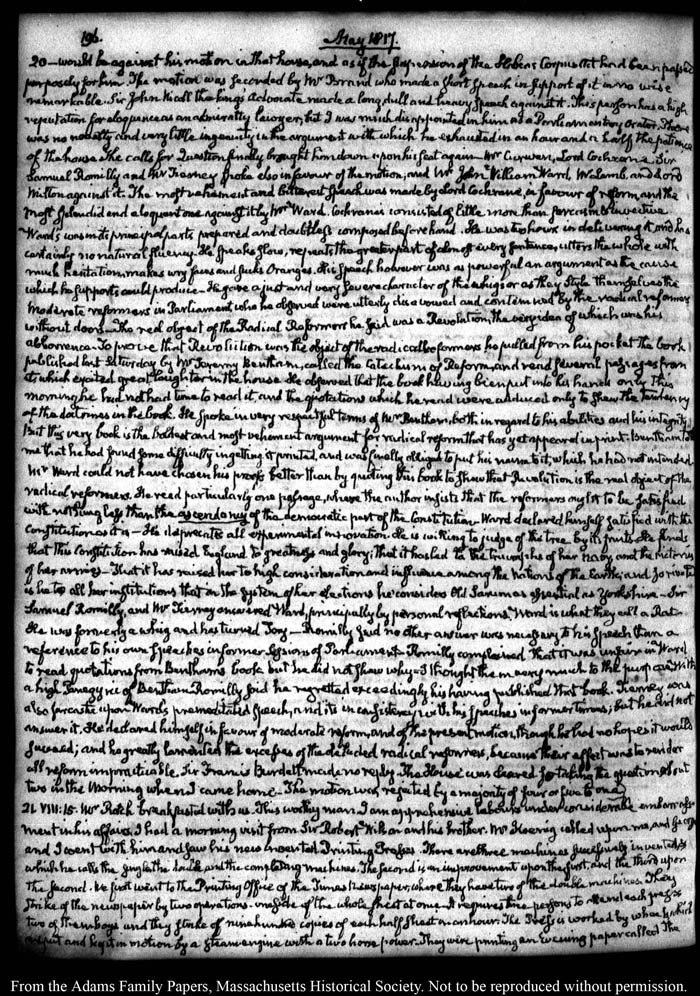 196.
May 1817.
20 — would be against his motion in that house, and as if the suspension of the Habeas Corpus Act had been passed
purposely for him. The motion was seconded by Mr Brand who made a short speech in support of it in no wise
remarkable. Sir John Nicoll the king's Advocate made a long, dull and heavy speech against it. This person has a high
reputation for eloquence as an Admiralty lawyer, but I was much disappointed in him as a Parliamentary Orator. There
was no novelty and very little ingenuity in the argument with which he exhausted in an hour and a half the patience
of the house. The calls for Question finally brought him down upon his seat again. Mr Curwen, Lord Cochrane, Sir
Samuel Romilly and Mr Tierney spoke also in favour of the motion, and Mr John William Ward, Mr Lamb, and Lord
Milton against it. The most vehement and bitterest speech was made by Lord Cochrane, in favour of reform, and the
most splendid and eloquent one against it by Mr Ward. Cochrane's consisted of little more than sarcasm & invective
Ward's was in its principal parts prepared and doubtless composed beforehand. He was two hours in delivering it, and has
certainly no natural fluency. He speaks slow, repeats the greater part of almost every sentence, utters the whole with
much hesitation, makes wry faces and sucks Oranges. His speech however was as powerful an argument as the cause
which he supports could produce. He gave a just and very severe character of the whigs or as they style themselves the
moderate reformers in Parliament, who he observed were utterly disavowed and contemned by the radical reformers
without doors. The real object of the Radical Reformers he said was a Revolution, the very idea of which was his
abhorrence. To prove that Revolution was the object of the radical reformers he pulled from his pocket the book
published last Saturday by Mr Jeremy Bentham, called the Catechism of Reform, and read several passages from
it, which excited great laughter in the house. He observed that the book having been put into his hands only this
morning he had not had time to read it, and the quotations which he read were adduced only to shew the tendency
of the doctrines in the book. He spoke in very respectful terms of Mr Bentham, both in regard to his abilities and his integrity.
But this very book is the boldest and most vehement argument for radical reform that has yet appeared in print. Bentham told
me that he had found some difficulty in getting it printed, and was finally obliged to put his name to it, which he had not intended.
Mr Ward could not have chosen his proofs better than by quoting this book to shew that Revolution is the real object of the
radical reformers. He read particularly one passage, where the author insists that the reformers ought to be satisfied
with nothing less than the ascendency of the democratic part of the Constitution. Ward declared himself satisfied with the
Constitution as it is — He deprecates all experimental innovation. He is willing to judge of the tree by its fruits. He finds
that this Constitution has raised England to greatness and glory; that it has led to the triumphs of her navy and the victories
of her armies — That it has raised her to high consideration and influence among the Nations of the Earth; and so rivetted
is he to all her institutions that in the system of her elections he considers Old Sarum as essential as Yorkshire — Sir
Samuel Romilly, and Mr Tierney answered Ward, principally by personal reflections. Ward is what they call a Rat —
He was formerly a whig and has turned Tory — Romilly said no other answer was necessary to his speech than a
reference to his own speeches in former Sessions of Parliament. Romilly complained that it was unfair in Ward
to read quotations from Bentham's book but he did not shew why — I thought them very much to the purpose. With
a high Panegyric of Bentham Romilly said he regretted exceedingly his having published that book. Tierney was
also sarcastic upon Ward's premeditated speech, and its inconsistency with his speeches in former times; but he did not
answer it. He declared himself in favour of moderate reform, and of the present motion, though he had no hopes it would
succeed; and he greatly lamented the excesses of the deluded radical reformers, because their effect was to render
all reform impracticable. Sir Francis Burdett made no reply. The House was cleared for taking the question about
two in the Morning when I came home. The motion was rejected by a majority of four or five to one.
21. VIII:15. Mr Rotch breakfasted with us. This worthy man I am apprehensive labours under considerable embarrass-
ment in his affairs. I had a morning visit from Sir Robert Wilson and his brother. Mr Koenig called upon me, and
and I went with him and saw his new invented Printing Presses. There are three machines successively invented;
which he calls the single, the double, and the completing machines. The second is an improvement upon the first, and the third upon
the second. We first went to the Printing Office of the Times Newspaper, where they have two of the double machines. They
strike off the newspaper by two operations — one side of the whole sheet at once. It requires three persons to attend each press
two of them boys and they strike off nine hundred copies of each half sheet an hour. The Press is worked by wheels which
and kept in motion by a steam engine with a two horse power. They were printing an Evening paper called The
From the Adams Family Papers, Massachusetts Historical Society. Not to be reproduced without permission.